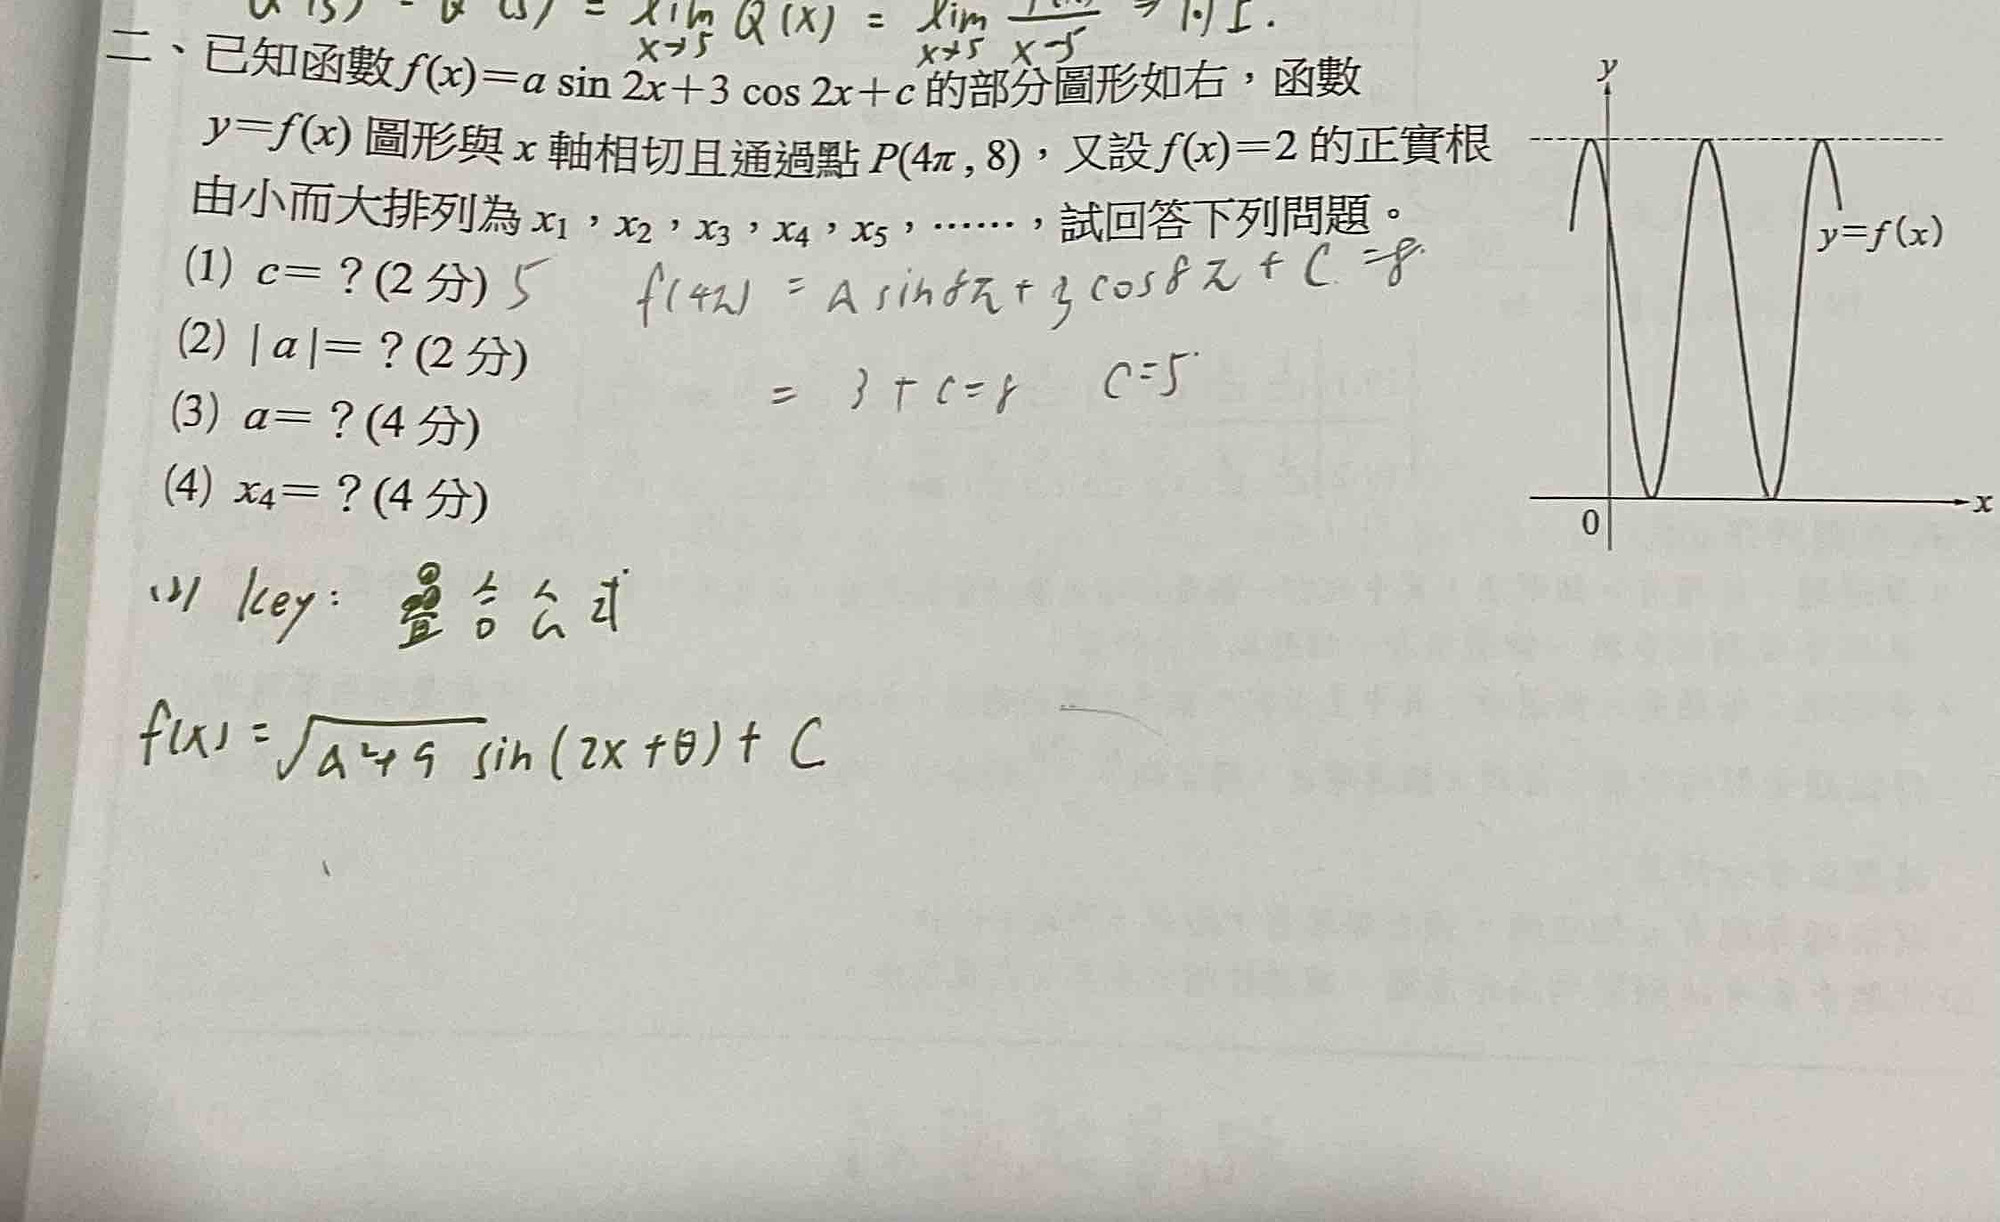 = lim Q(x) = lim
x→5 x→5 x-5
二、已知函數 f(x)=a sin 2x+3 cos 2x+c 的部分圖形如右，函數
y=f(x) 圖形與 x 軸相切且通過點 P(4π , 8)，又設 f(x)=2 的正實根
由小而大排列為 x₁，x₂，x₃，x₄，x₅，……，試回答下列問題。
(1) c=？(2 分) 5
f(4π) = a sin8π + 3 cos8π + C = 8
(2) | a |=？(2 分)
= 3 + c = 8 C=5
(3) a=？(4 分)
(4) x₄=？(4 分)
y
y=f(x)
0
x
key: 疊合公式
f(x) = √a²+9 sin (2x+θ) + C